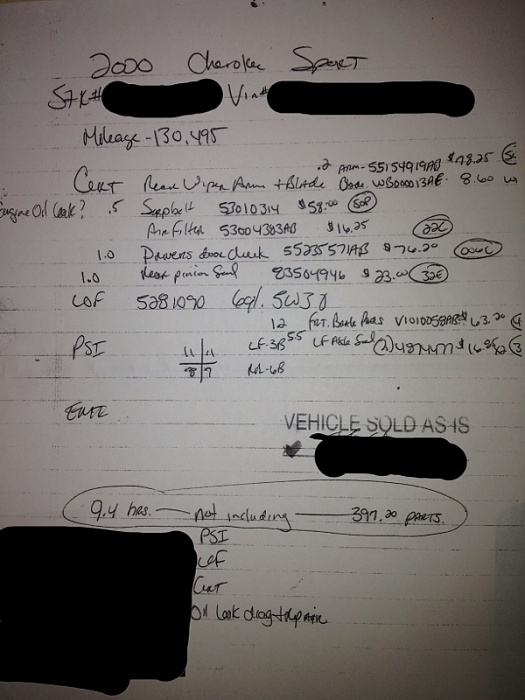 2000 Cherokee Sport
STK# Vin#
Mileage - 130,495
.2 Arm - 55154919AB $48.25
Cert Rear Wiper Arm + Blade Blade WB000013AE 8.60
Engine Oil Leak? .5 Serp belt 53010314 $58.00
Air Filter 53004383AB $16.25
1.0 Drivers door check 55235571AB $76.20
1.0 Rear pinion Seal 83504946 $23.00 32E
LOF 5281090 6qt. 5W30
1.2 Frt. Brake Pads V1010058AB $63.20
PSI 11 11 LF-3B LF Axle Seal (2) 4874477 $16.95
8 7 RR-6B
EMIE
VEHICLE SOLD AS-IS
9.4 hrs. — not including — 397.20 PARTS.
PSI
LOF
Cert
Oil leak diag + repair